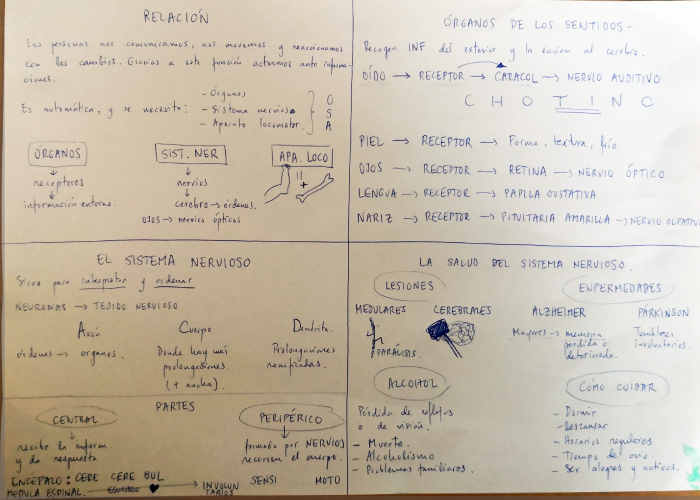 RELACIÓN
Las personas nos comunicamos, nos movemos y reaccionamos
con los cambios. Gracias a esta función actuamos ante informa-
ciones.
Es automática, y se necesita:
- Órganos
- Sistema nervioso
- Aparato locomotor.
O
S
A
ÓRGANOS
↓
receptores
↓
información entorno.
SIST. NER
↓
nervios
↓
cerebro → órdenes.
OJOS → nervios ópticos
APA. LOCO
+
ÓRGANOS DE LOS SENTIDOS -
Recogen INF del exterior y la envían al cerebro.
OÍDO → RECEPTOR → CARACOL → NERVIO AUDITIVO
C H O T I N O
PIEL → RECEPTOR → Forma, textura, frío
OJOS → RECEPTOR → RETINA → NERVIO ÓPTICO
LENGUA → RECEPTOR → PAPILA GUSTATIVA
NARIZ → RECEPTOR → PITUITARIA AMARILLA → NERVIO OLFATIVO
EL SISTEMA NERVIOSO
Sirve para interpretar y ordenar
NEURONAS → TEJIDO NERVIOSO
Axón
órdenes → órganos.
Cuerpo
Donde hay más
prolongaciones.
(+ ancha).
Dendrita.
Prolongaciones
ramificadas.
PARTES
CENTRAL
↓
recibe la inform.
y da respuesta
PERIFÉRICO
↓
formado por NERVIOS
recorren el cuerpo.
ENCÉFALO: CERE CERE BUL
MEDULA ESPINAL.
INVOLUN
TARIOS
SENSI
MOTO
LA SALUD DEL SISTEMA NERVIOSO.
LESIONES
MEDULARES
PARÁLISIS.
CEREBRALES
ENFERMEDADES
ALZHEIMER
Mayores → memoria
perdida o
deteriorada.
PÁRKINSON
Temblores
involuntarios.
ALCOHOL
Pérdida de reflejos
o de visión.
- Muerte.
- Alcoholismo
- Problemas familiares.
CÓMO CUIDAR
- Dormir
- Descansar
- Horarios regulares
- Tiempo de ocio.
- Ser alegres y activos.